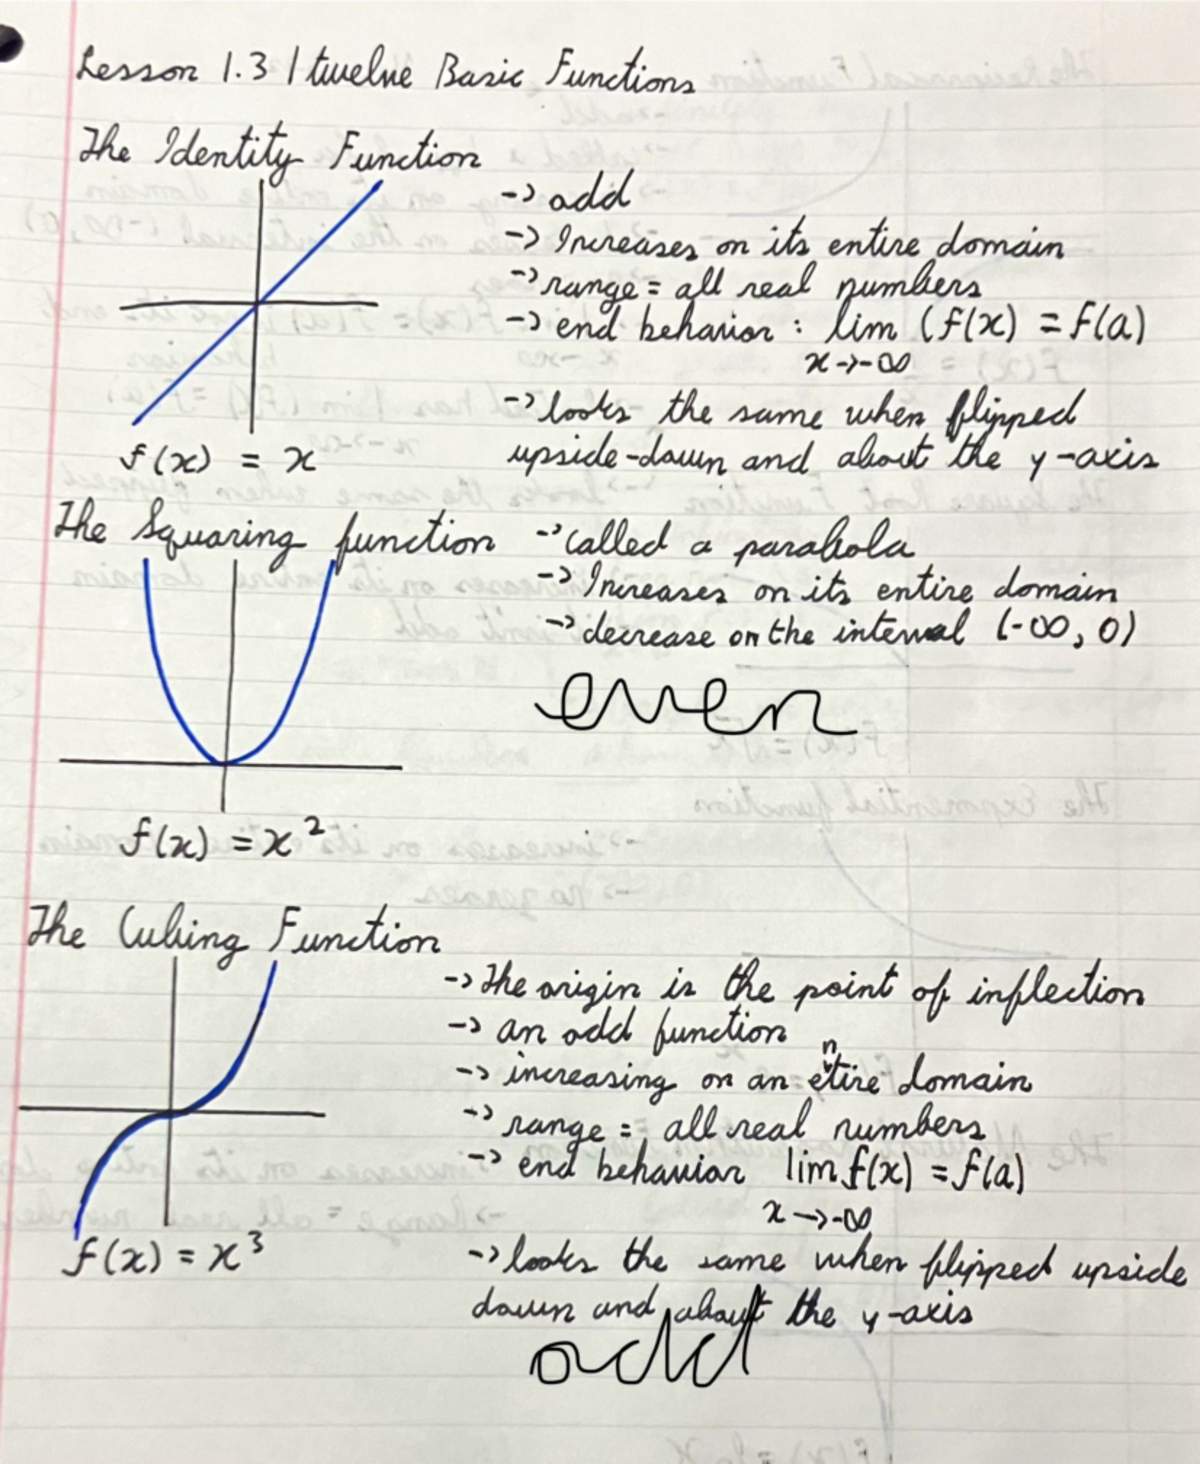 Lesson 1.3 | twelve Basic Functions
The Identity Function
-> odd
-> Increases on its entire domain
-> range = all real numbers
-> end behavior : lim (f(x) = f(a)
x->-∞
-> looks the same when flipped
upside-down and about the y-axis
f(x) = x
The Squaring function
-> called a parabola
-> Increases on its entire domain
-> decrease on the interval (-∞, 0)
even
f(x) = x²
The Cubing Function
-> The origin is the point of inflection
-> an odd function
-> increasing on an entire domain
-> range = all real numbers
-> end behavior lim f(x) = f(a)
x->-∞
-> looks the same when flipped upside
down and about the y-axis
odd
f(x) = x³